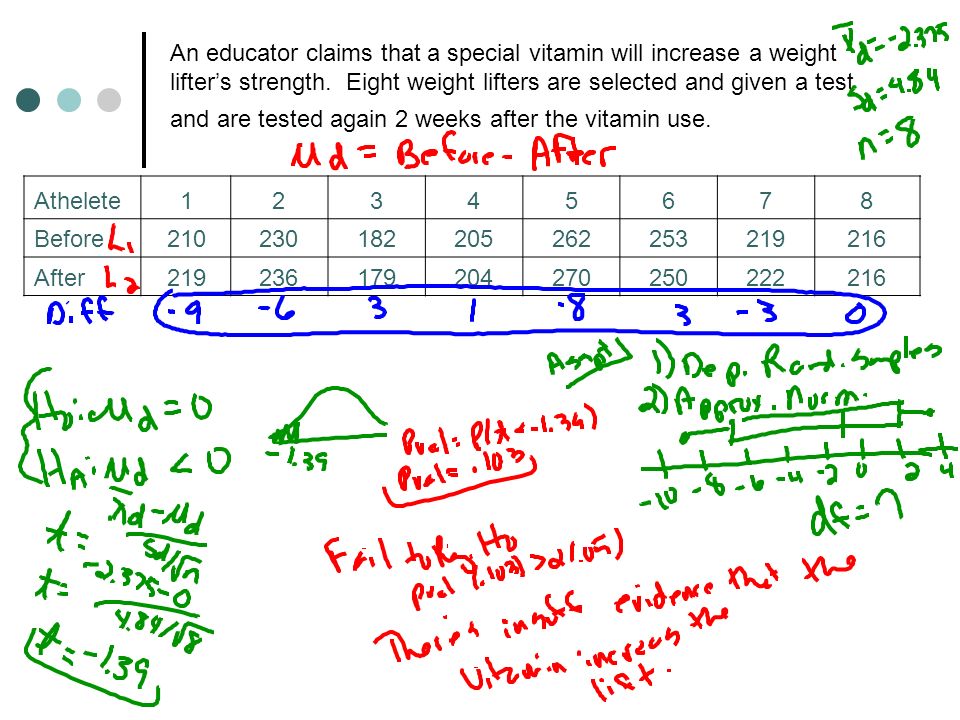 An educator claims that a special vitamin will increase a weight
lifter's strength. Eight weight lifters are selected and given a test
and are tested again 2 weeks after the vitamin use.
x̄d = -2.375
Sd = 4.84
n = 8
μd = Before - After
Athelete 1 2 3 4 5 6 7 8
Before L1 210 230 182 205 262 253 219 216
After L2 219 236 179 204 270 250 222 216
Diff -9 -6 3 1 -8 3 -3 0
Asspt
1) Dep. Rand. samples
2) Approx. Norm.
-10 -8 -6 -4 -2 0 2 4
df = 7
Ho: μd = 0
HA: μd < 0
-1.39
Pval = P(t < -1.39)
Pval = .103
t = x̄d - μd / Sd/√n
t = -2.375-0 / 4.84/√8
t = -1.39
Fail to Rej Ho
pval (.103) > α (.05)
There is insuff evidence that the
vitamin increas the
lift.